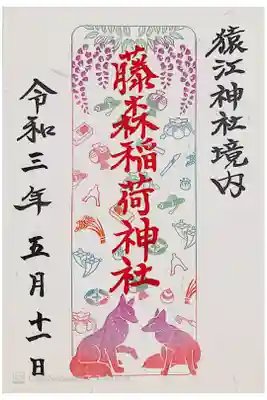 猿江神社境内
藤森稲荷神社
令和三年 五月 十一日